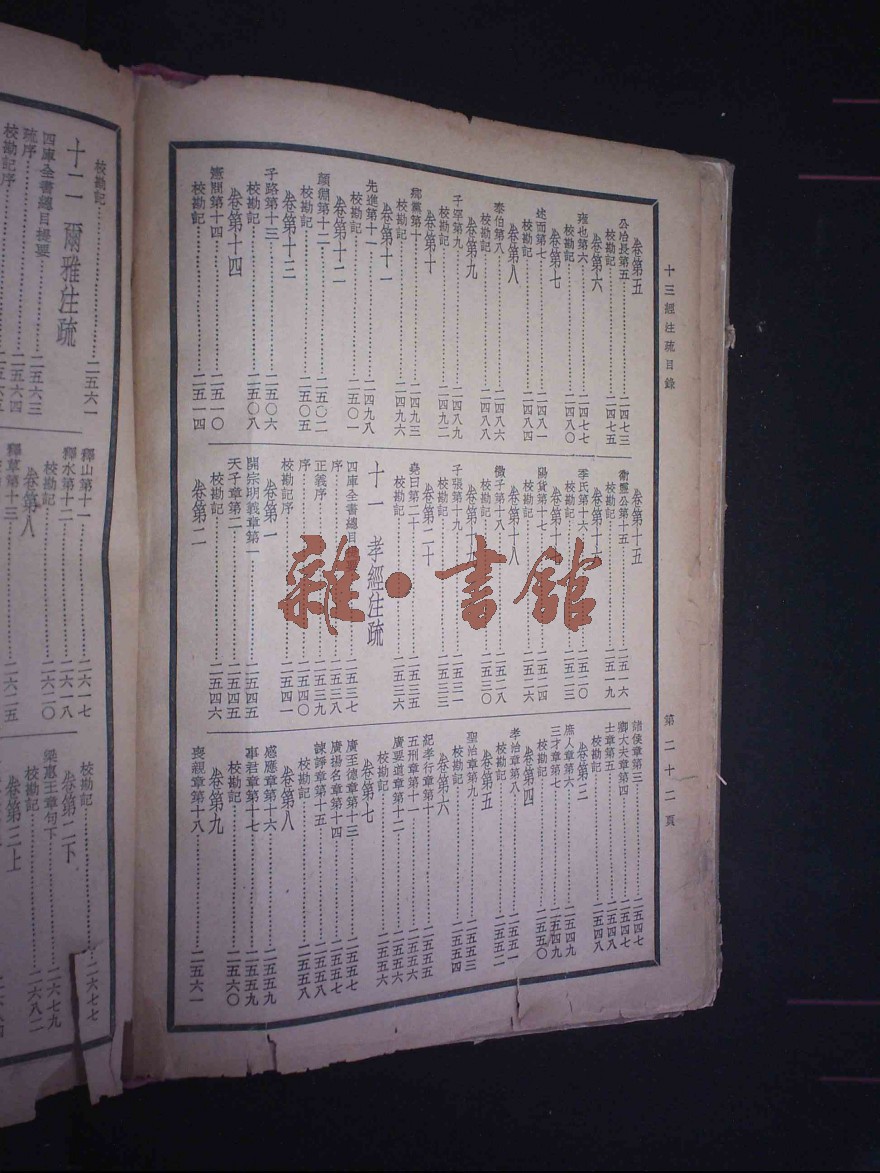 十三經注疏目錄
第二十二頁
卷第五
公冶長第五⋯⋯二四七三
校勘記⋯⋯二四七五
卷第六
雍也第六⋯⋯二四七七
校勘記⋯⋯二四八〇
卷第七
述而第七⋯⋯二四八一
校勘記⋯⋯二四八四
卷第八
泰伯第八⋯⋯二四八六
校勘記⋯⋯二四八八
卷第九
子罕第九⋯⋯二四八九
校勘記⋯⋯二四九二
卷第十
鄉黨第十⋯⋯二四九三
校勘記⋯⋯二四九六
卷第十一
先進第十一⋯⋯二四九八
校勘記⋯⋯二五〇一
卷第十二
顏淵第十二⋯⋯二五〇二
校勘記⋯⋯二五〇五
卷第十三
子路第十三⋯⋯二五〇六
校勘記⋯⋯二五〇八
卷第十四
憲問第十四⋯⋯二五一〇
校勘記⋯⋯二五一四
卷第十五
衛靈公第十五⋯⋯二五一六
校勘記⋯⋯二五一九
卷第十六
季氏第十六⋯⋯二五二〇
校勘記⋯⋯二五二三
卷第十
陽貨第十七⋯⋯二五二四
校勘記⋯⋯二五二六
卷第十八
微子第十八⋯⋯二五二八
校勘記⋯⋯二五三〇
卷第十九
子張第十九⋯⋯二五三一
校勘記⋯⋯二五三三
卷第二十
堯曰第二十⋯⋯二五三五
校勘記⋯⋯二五三六
十一 孝經注疏
四庫全書總目⋯⋯二五三七
序⋯⋯二五三八
正義序⋯⋯二五三九
序⋯⋯二五四〇
校勘記序⋯⋯二五四一
卷第一
開宗明義章第一⋯⋯二五四五
天子章第二⋯⋯二五四五
校勘記⋯⋯二五四六
卷第二
諸侯章第三⋯⋯二五四七
卿大夫章第四⋯⋯二五四七
士章第五⋯⋯二五四八
校勘記⋯⋯二五四八
卷第三
庶人章第六⋯⋯二五四九
三才章第七⋯⋯二五四九
校勘記⋯⋯二五五〇
卷第四
孝治章第八⋯⋯二五五一
校勘記⋯⋯二五五二
卷第五
聖治章第九⋯⋯二五五三
校勘記⋯⋯二五五四
卷第六
紀孝行章第十⋯⋯二五五五
五刑章第十一⋯⋯二五五六
廣要道章第十二⋯⋯二五五六
校勘記⋯⋯二五五六
卷第七
廣至德章第十三⋯⋯二五五七
廣揚名章第十四⋯⋯二五五七
諫諍章第十五⋯⋯二五五八
校勘記⋯⋯二五五八
卷第八
感應章第十六⋯⋯二五五九
事君章第十七⋯⋯二五五九
校勘記⋯⋯二五六〇
卷第九
喪親章第十八⋯⋯二五六一
校勘記⋯⋯二五六一
十二 爾雅注疏
四庫全書總目提要⋯⋯二五六三
疏序⋯⋯二五六四
校勘記序⋯⋯二五六五
釋山第十一⋯⋯二六一七
釋水第十二⋯⋯二六一八
校勘記⋯⋯二六二〇
卷第八
釋草第十三⋯⋯二六二五
校勘記⋯⋯二六七七
卷第二下
梁惠王章句下⋯⋯二六七九
校勘記⋯⋯二六八二
卷第三上
雜·書館